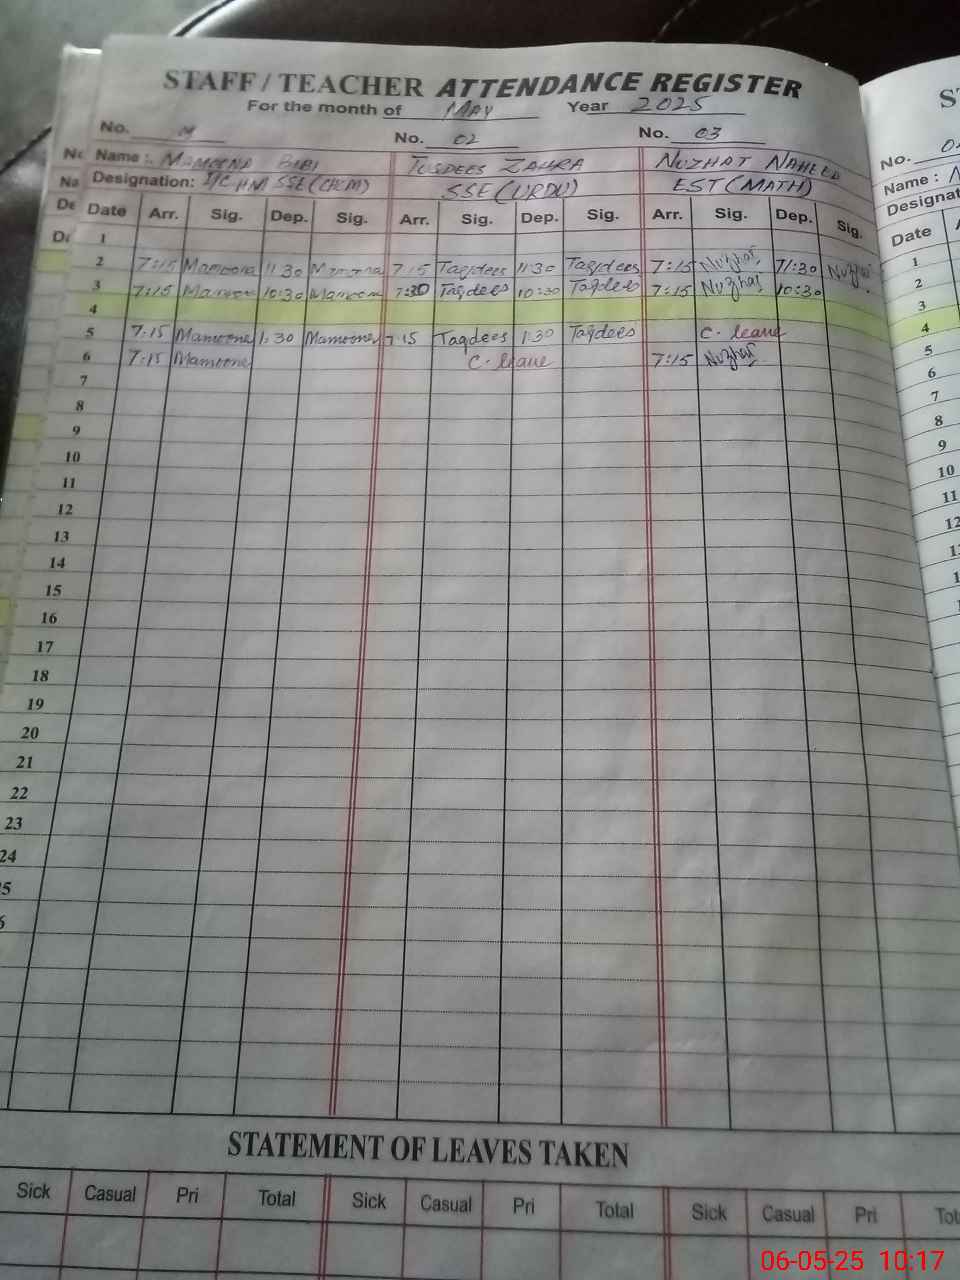 STAFF / TEACHER ATTENDANCE REGISTER
For the month of MAY Year 2025
No. No. 02 No. 03
Name : MAMOONA BIBI TUSDEES ZAHRA NUZHAT NAHEED
Designation: I/C HM SSE(CHEM) SSE(URDU) EST(MATH)
Date Arr. Sig. Dep. Sig. Arr. Sig. Dep. Sig. Arr. Sig. Dep. Sig.
1
2 7:15 Mamoona 11:30 Mamoona 7:15 Taqdees 11:30 Taqdees 7:15 Nuzhat 11:30 Nuzhat
3 7:15 Mamoona 10:30 Mamoona 7:30 Taqdees 10:30 Taqdees 7:15 Nuzhat 10:30
4
5 7:15 Mamoona 1:30 Mamoona 7:15 Taqdees 1:30 Taqdees C. leave
6 7:15 Mamoona C. leave 7:15 Nuzhat
7
8
9
10
11
12
13
14
15
16
17
18
19
20
21
22
23
24
STATEMENT OF LEAVES TAKEN
Sick Casual Pri Total Sick Casual Pri Total Sick Casual Pri
No.
Name :
Date
1
2
3
4
5
6
7
8
9
10
11
12
06-05-25 10:17